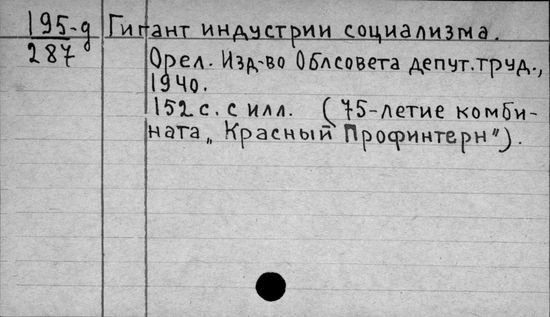 195-д Гигант индустрии социализма.
287 Орел. Изд-во Облсовета депут. труд.,
1940.
152 с. с илл. (75-летие комби-
ната „Красный Профинтерн").